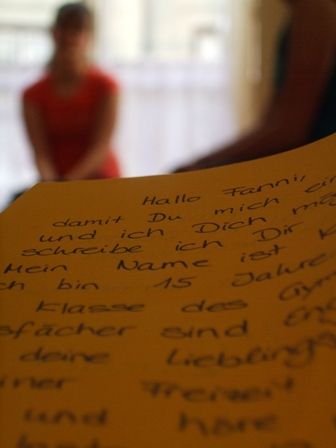 Hallo Fanni,
damit Du mich
und ich Dich
schreibe ich Dir
Mein Name ist
bin 15 Jahre
Klasse des
sind
deine Lieblings
Freizeit
und höre